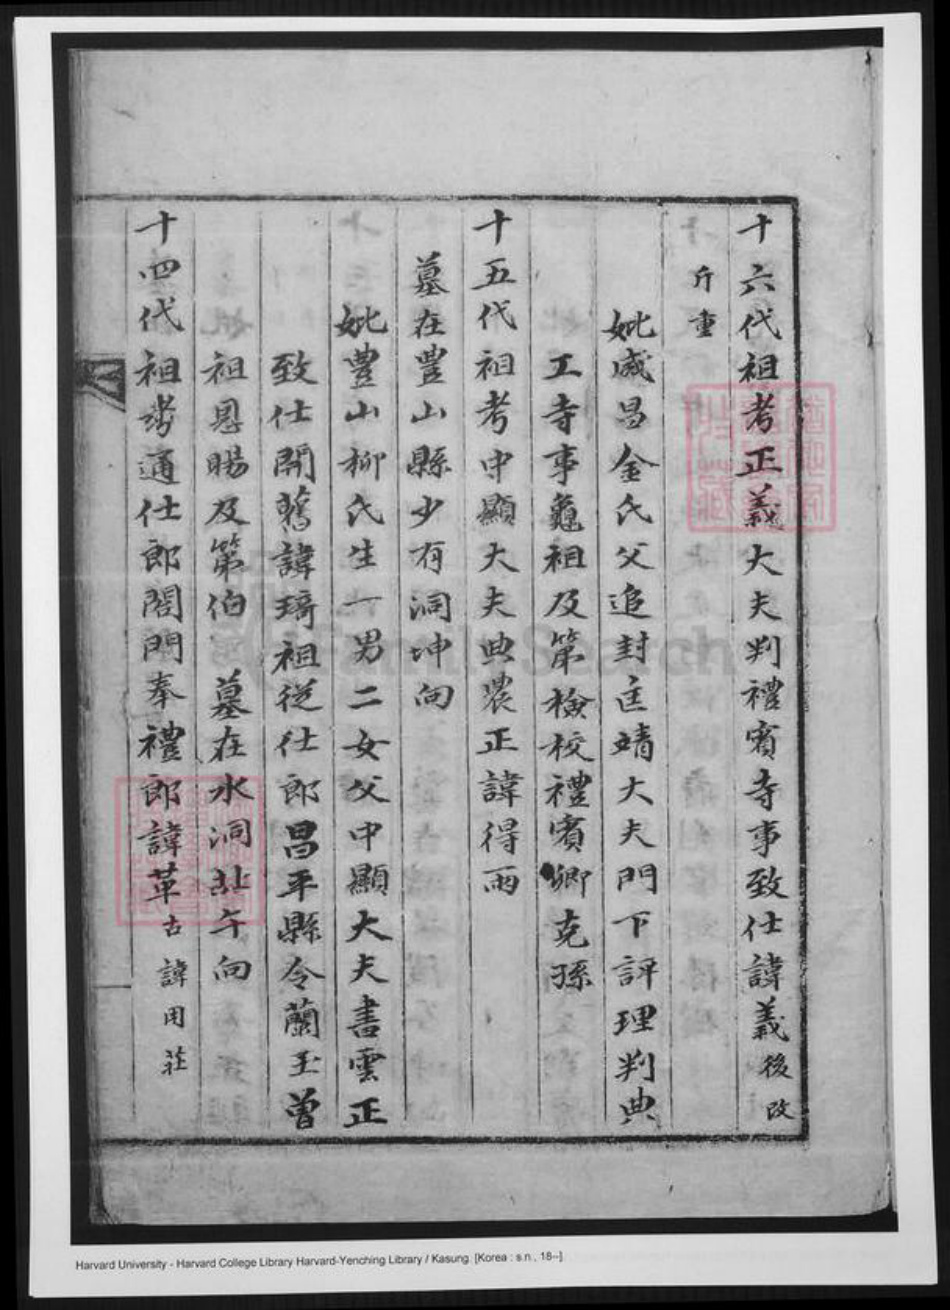 十六代祖考正義大夫判禮賓寺事致仕諱義後改
斤重
妣咸昌金氏父追封匡靖大夫門下評理判典
工寺事龜祖及第檢校禮賓卿克孫
十五代祖考中顯大夫典農正諱得雨
墓在豊山縣少有洞坤向
妣豊山柳氏生一男二女父中顯大夫書雲正
致仕開舊諱琦祖従仕郎昌平縣令蘭玉曾
祖恩賜及第伯 墓在水洞 午向
十四代祖考通仕郎閤門奉禮郎諱革古諱用莊
Harvard University - Harvard College Library Harvard-Yenching Library / Kasung. [Korea : s.n., 18--].